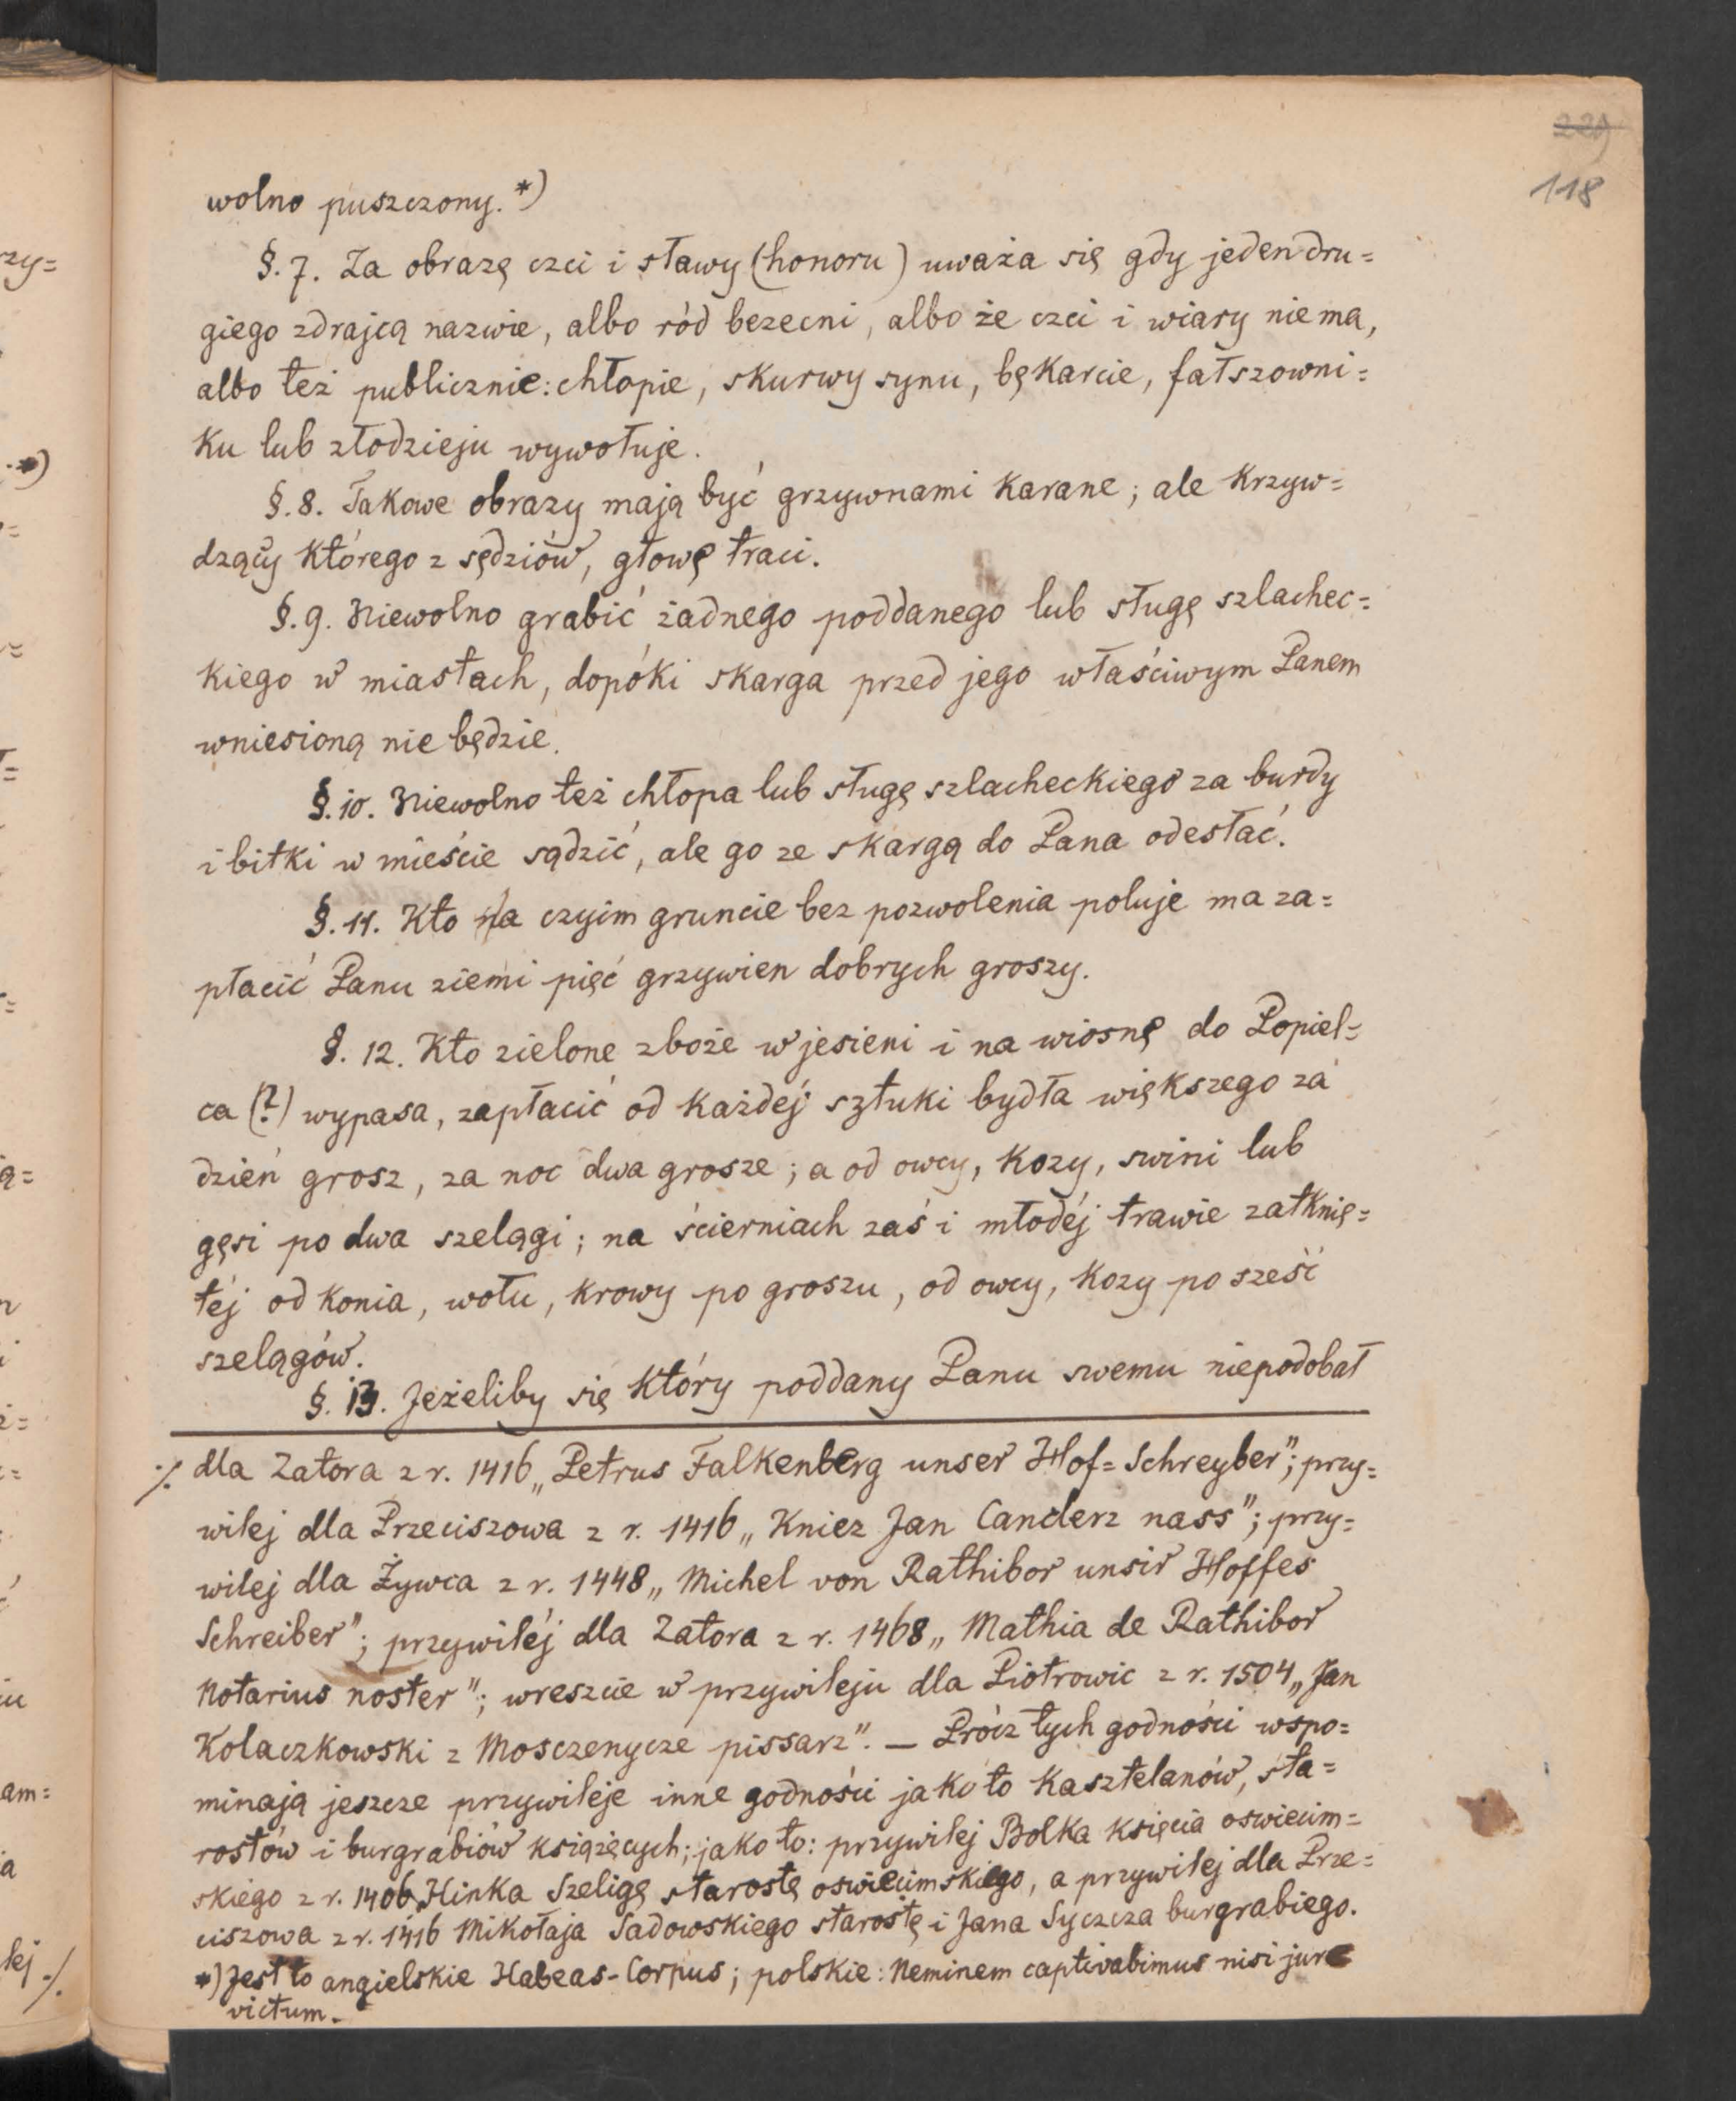 229
118
wolno puszczony.*)
§. 7. Za obrazę czci i sławy (honoru) uważa się gdy jeden dru=
giego zdrajcą nazwie, albo ród bezecni, albo że czci i wiary niema,
albo też publicznie: chłopie, skurwy synu, bękarcie, fałszowni=
ku lub złodzieju wywołuje.
§. 8. Takowe obrazy mają być grzywnami karane; ale krzyw=
dzący którego z sędziów, głowę traci.
§. 9. Niewolno grabić żadnego poddanego lub sługę szlachec=
kiego w miastach, dopóki skarga przed jego właściwym Panem
wniesioną nie będzie.
§. 10. Niewolno też chłopa lub sługę szlacheckiego za burdy
i bitki w mieście sądzić, ale go ze skargą do Pana odesłać.
§. 11. Kto na czyim gruncie bez pozwolenia poluje ma za=
płacić Panu ziemi pięć grzywien dobrych groszy.
§. 12. Kto zielone zboże w jesieni i na wiosnę do Popiel=
ca (?) wypasa, zapłacić od każdéj sztuki bydła większego za
dzień grosz, za noc dwa grosze; a od owcy, kozy, swini lub
gęsi po dwa szelągi; na ścierniach zaś i młodéj trawie zatknię=
téj od konia, wołu, krowy po groszu, od owcy, kozy po sześć
szelągów.
§. 13. Jeżeliby się który poddany Panu swemu niepodobał
./. dla Zatora z r. 1416 „Petrus Falkenberg unser Hof=Schreyber"; przy=
wilej dla Przeciszowa z r. 1416 „Kniez Jan Canclerz nass"; przy=
wilej dla Żywca z r. 1448 „Michel von Rathibor unsir Hoffes
Schreiber"; przywiléj dla Zatora z r. 1468 „Mathia de Rathibor
Notarius noster"; wreszcie w przywileju dla Piotrowic z r. 1504 „Jan
Kolaczkowski z Mosczenycze pissarz". — Prócz tych godności wspo=
minają jeszcze przywileje inne godności jako to kasztelanów, sta=
rostów i burgrabiów książęcych; jako to: przywilej Bolka księcia oswiecim=
skiego z r. 1406 Hinka Szeligę starostę oswiecimskiego, a przywilej dla Prze=
ciszowa z r. 1416 Mikołaja Sadowskiego starostę i Jana Syczcza burgrabiego.
*) Jest to angielskie Habeas-Corpus; polskie: Neminem captivabimus nisi jure
victum.